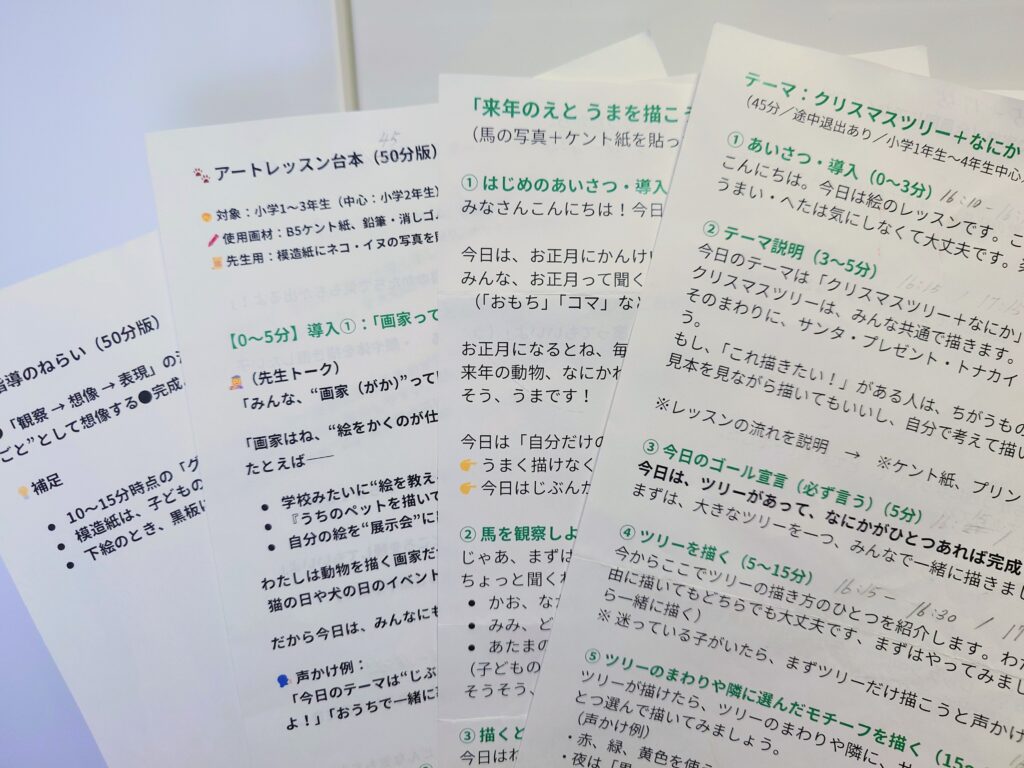 指導のねらい（50分版）
「観察 → 想像 → 表現」の
ごと”として想像する●完成
💡補足
• 10〜15分時点の「グ
• 模造紙は、子どもの
• 下絵のとき、黒板に
45
🐾 アートレッスン台本（50分版）
対象：小学1〜3年生（中心：小学2年生）
使用画材：B5ケント紙、鉛筆・消しゴム
先生用：模造紙にネコ・イヌの写真を
【0〜5分】導入①：「画家って
（先生トーク）
「みんな、“画家（がか）”ってい
「画家はね、“絵をかくのが仕
たとえば──
• 学校みたいに“絵を教え
• 『うちのペットを描いて
• 自分の絵を“展示会”に
わたしは動物を描く画家だ
猫の日や犬の日のイベント
だから今日は、みんなにも
🗣 声かけ例：
「今日のテーマは“じぶ
よ！」「おうちで一緒に
「来年のえと うまを描こう
（馬の写真＋ケント紙を貼っ
① はじめのあいさつ・導入
みなさんこんにちは！今日
今日は、お正月にかんけい
みんな、お正月って聞く
（「おもち」「コマ」など
お正月になるとね、毎
来年の動物、なにかわ
そう、うまです！
今日は「自分だけの
👉 うまく描けなく
👉 今日はじぶんだ
② 馬を観察しよ
じゃあ、まずは
ちょっと聞くね
• かお、なが
• みみ、ど
• あたまの
（子どもの
そうそう、
③ 描くと
今日はね
テーマ：クリスマスツリー＋なにか
（45分／途中退出あり／小学1年生〜4年生中心
① あいさつ・導入（0〜3分） 16:10 -
こんにちは。今日は絵のレッスンです。こ
うまい・へたは気にしなくて大丈夫です。
② テーマ説明（3〜5分）
16:15 / 17:15
今日のテーマは「クリスマスツリー＋なにか」
クリスマスツリーは、みんな共通で描きます。
そのまわりに、サンタ・プレゼント・トナカイ
う。
もし、「これ描きたい！」がある人は、ちがうもの
見本を見ながら描いてもいいし、自分で考えて描い
※レッスンの流れを説明 → ※ケント紙、プリン
③ 今日のゴール宣言（必ず言う）（5分）
今日は、ツリーがあって、なにかがひとつあれば完成
まずは、大きなツリーを一つ、みんなで一緒に描きまし
④ ツリーを描く（5〜15分） 16:15 - 16:30 / 17
今からここでツリーの描き方のひとつを紹介します。わた
由に描いてもどちらでも大丈夫です、まずはやってみまし
ら一緒に描く）
※ 迷っている子がいたら、まずツリーだけ描こうと声かけ
⑤ ツリーのまわりや隣に選んだモチーフを描く（15〜
ツリーが描けたら、ツリーのまわりや隣に、サ
とつ選んで描いてみましょう。
（声かけ例）
・赤、緑、黄色を使う
・夜は「黒